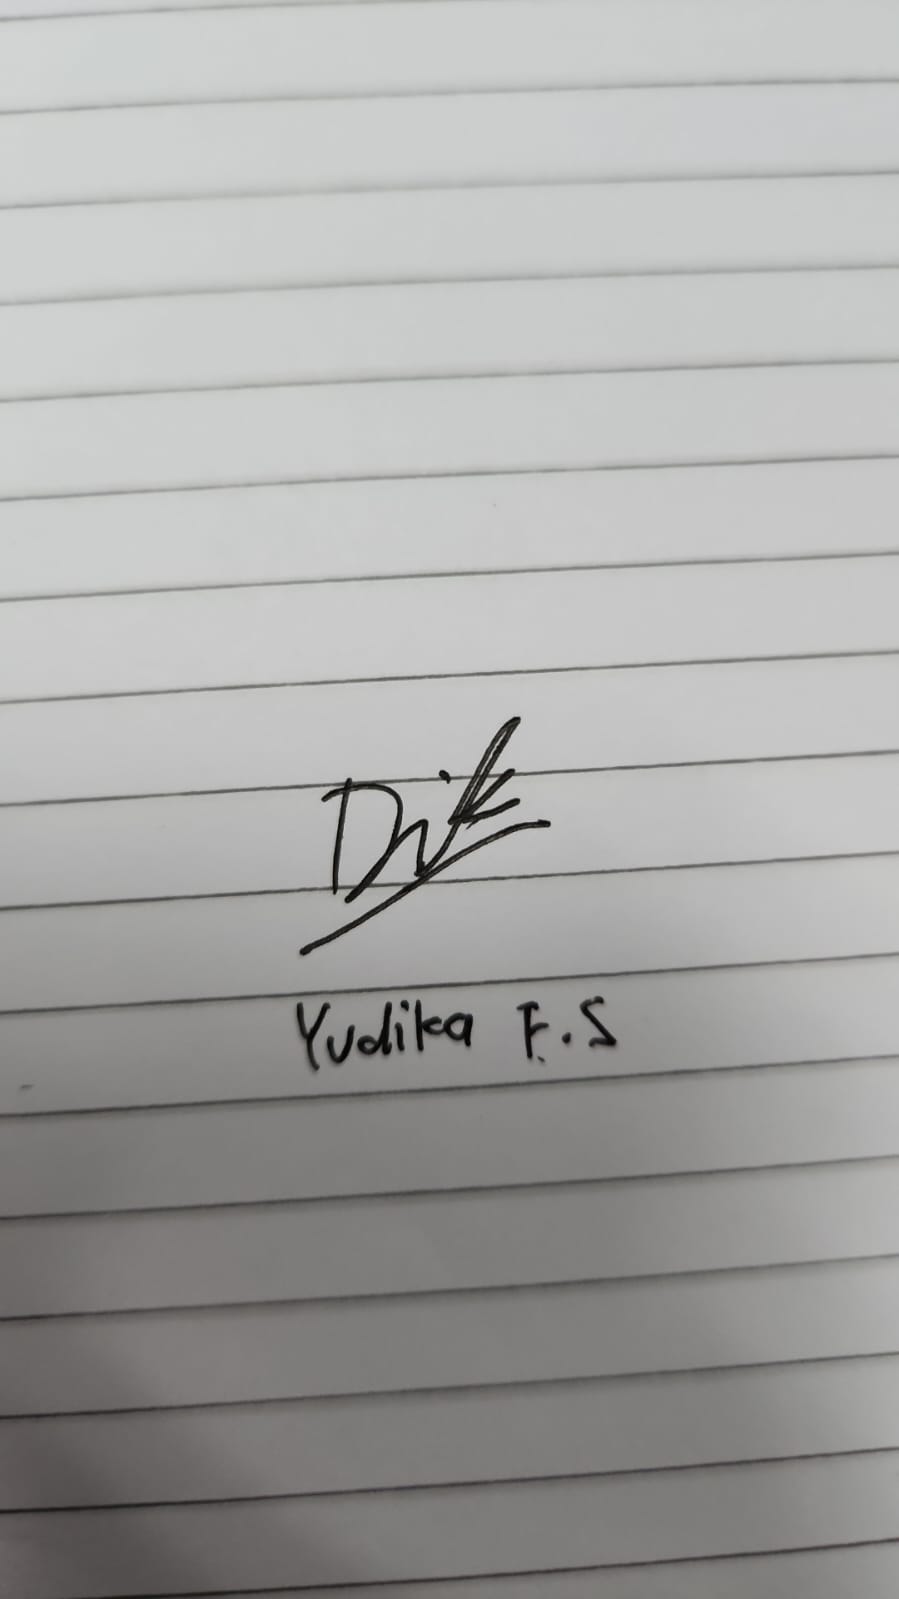 Dik
Yudika F.S